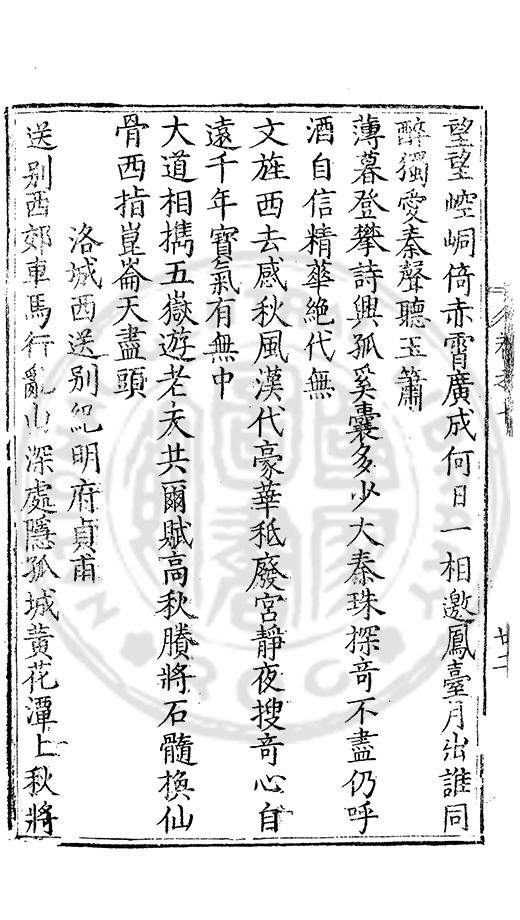 望望崆峒倚赤霄廣成何日一相邀鳳臺月出誰同
醉獨愛秦聲聽玉簫
薄暮登攀詩興孤奚囊多少大秦珠探竒不盡仍呼
酒自信精華絶代無
文旌西去感秋風漢代豪華秖廢宮靜夜搜竒心自
遠千年寶氣有無中
大道相携五嶽遊老夫共爾賦高秋賸將石髓換仙
骨西指崑崙天盡頭
洛城西送别紀明府貞甫
送别西郊車馬行亂山深處隱孤城黄花潭上秋將
廿二